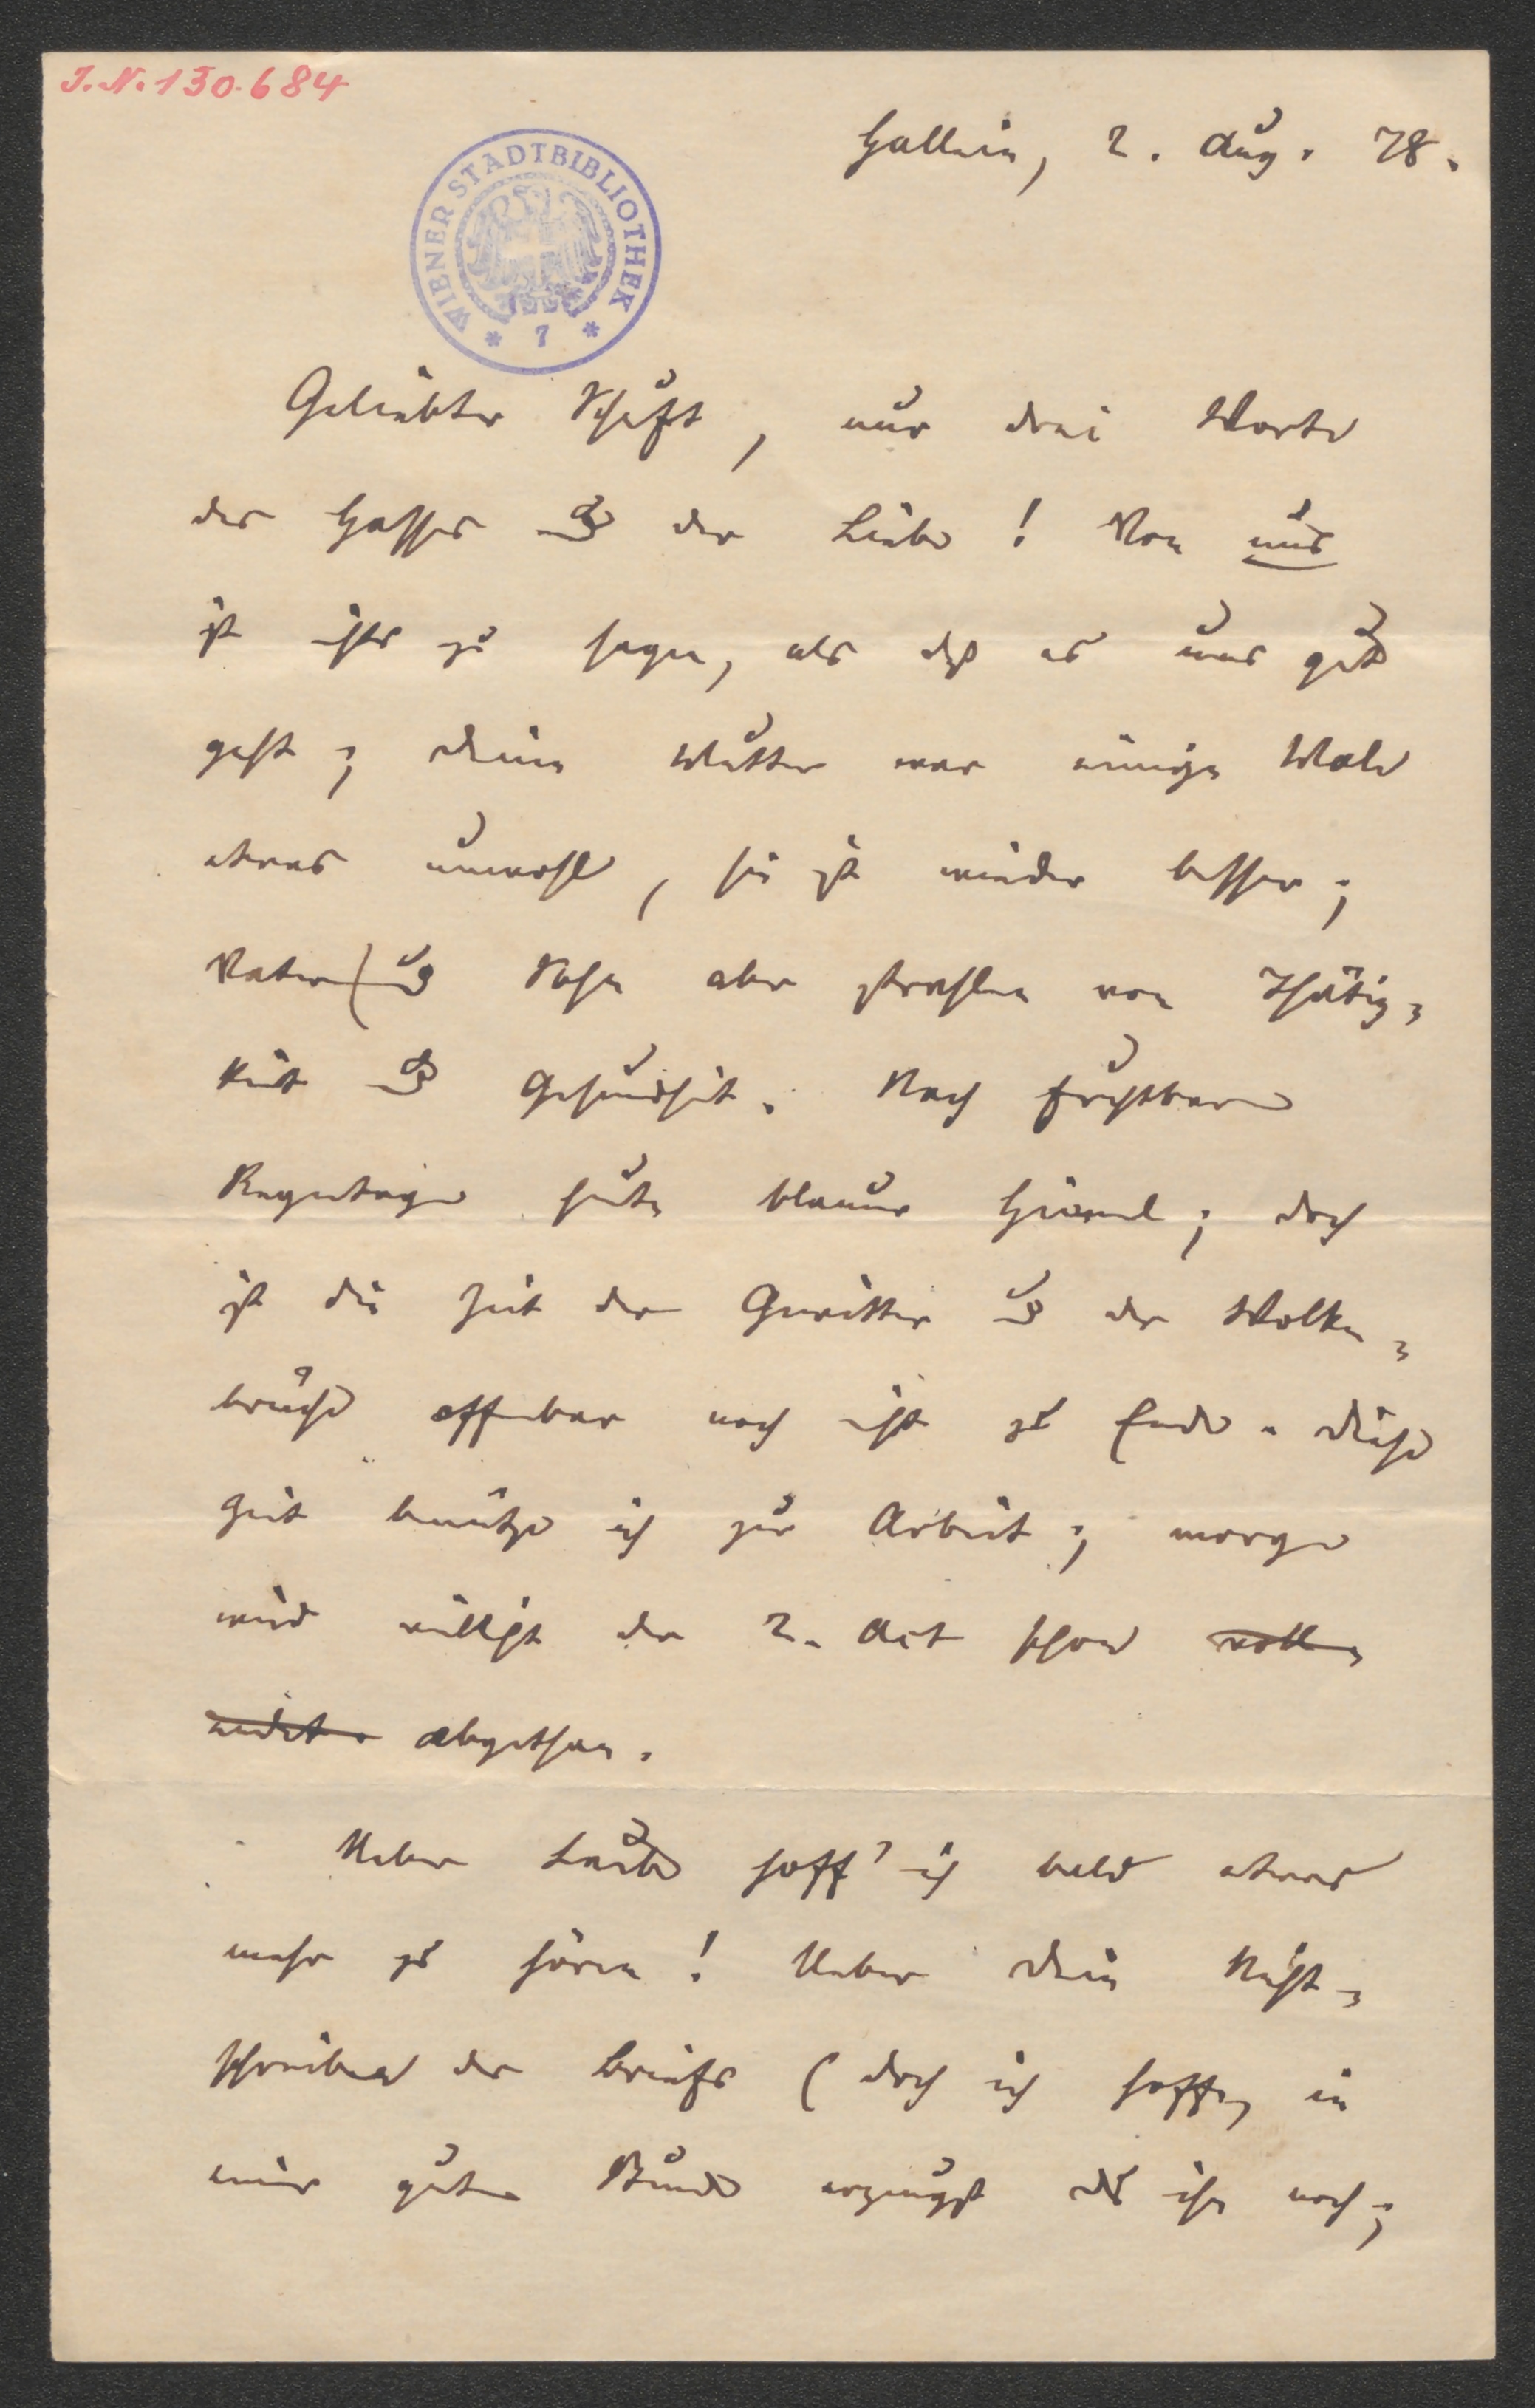 I.N. 130.684
WIENER STADTBIBLIOTHEK
* 7 *
Hallein, 2. Aug. 78.
Geliebter Schuft, nur drei Worte
des Hasses und der Liebe! Von uns
ist nichts zu sagen, als daß es uns gut
geht; deine Mutter war einige Male
etwas unwohl, sie ist wieder besser;
Vater und Sohn aber strahlen von Thätig-
keit und Gesundheit. Nach furchtbaren
Regentagen heute blauer Himmel; doch
ist die Zeit der Gewitter und der Wolken-
brüche offenbar noch nicht zu Ende. Diese
Zeit benütze ich zur Arbeit; morgen
wird vielleicht der 2. Act schon
abgethan.
Ueber hoff' ich bald etwas
mehr zu hören! Ueber dein Nicht-
schreiben des Briefs (doch ich hoffe, in
einer guten Stunde erzeugst du ihn noch;